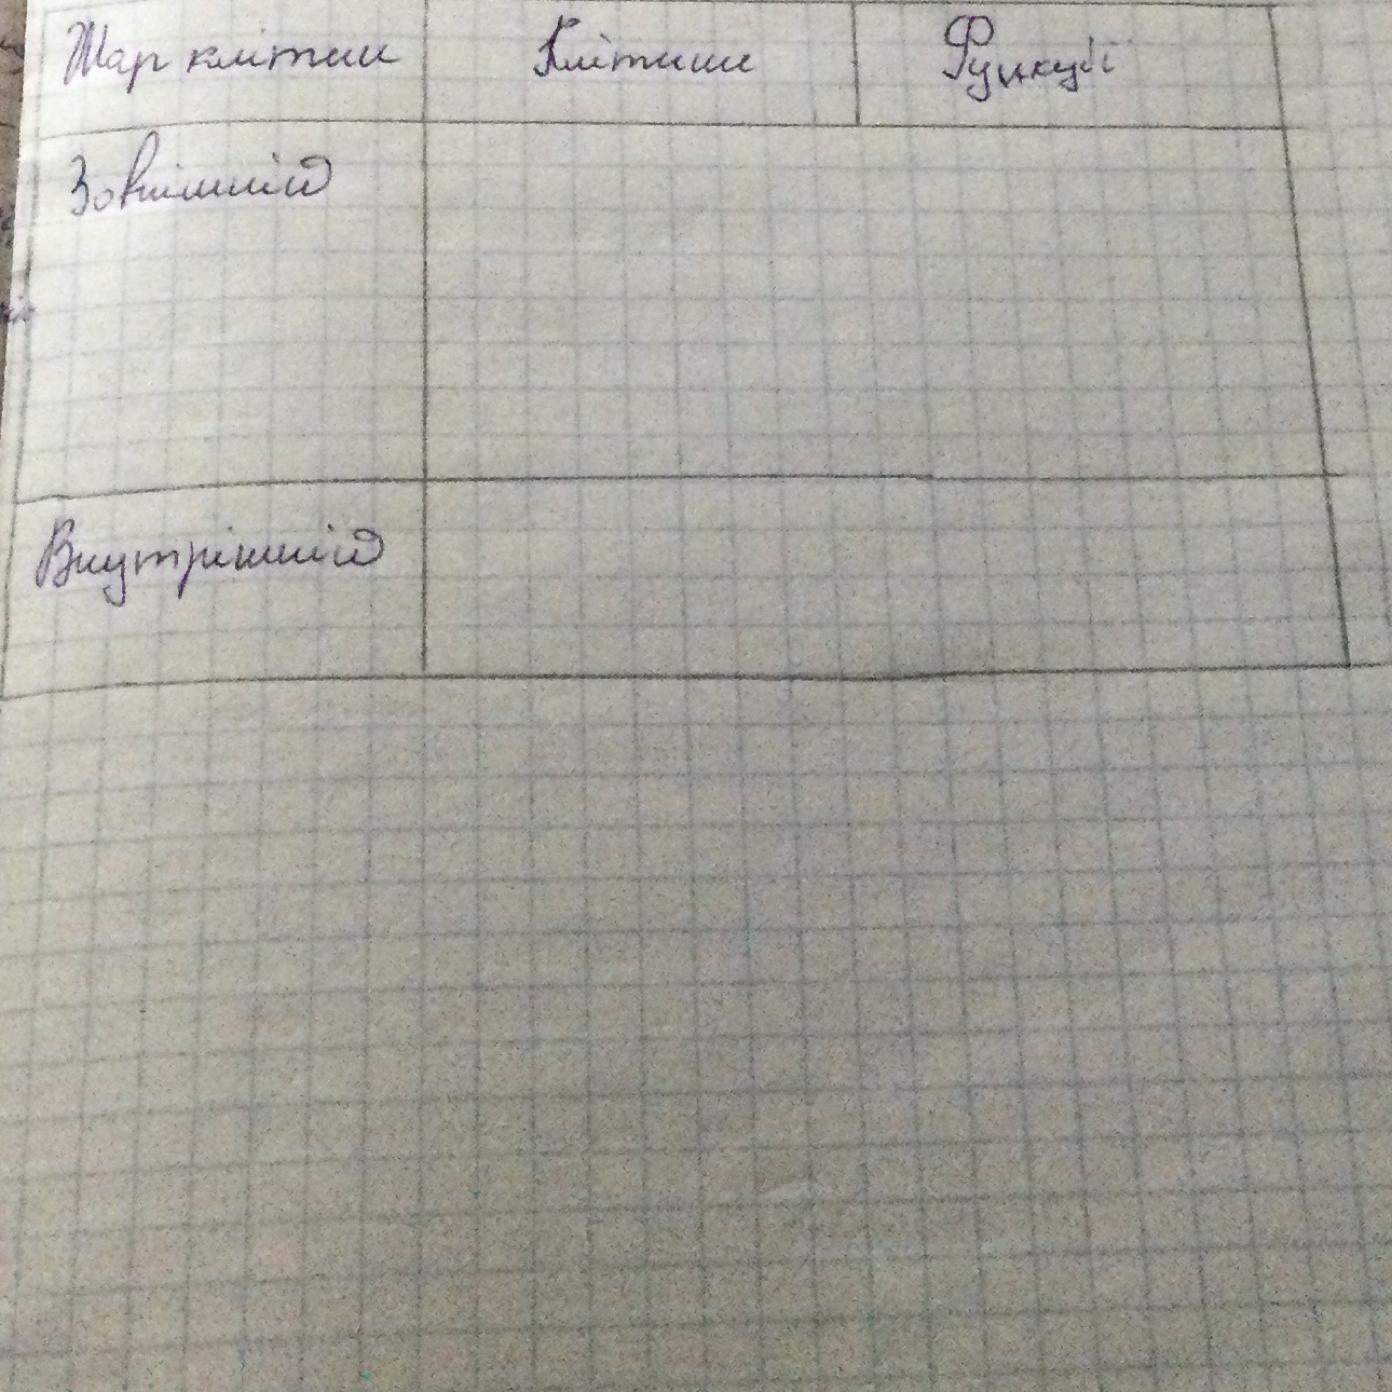 Шар клітин Клітини Функції
Зовнішній
Внутрішній